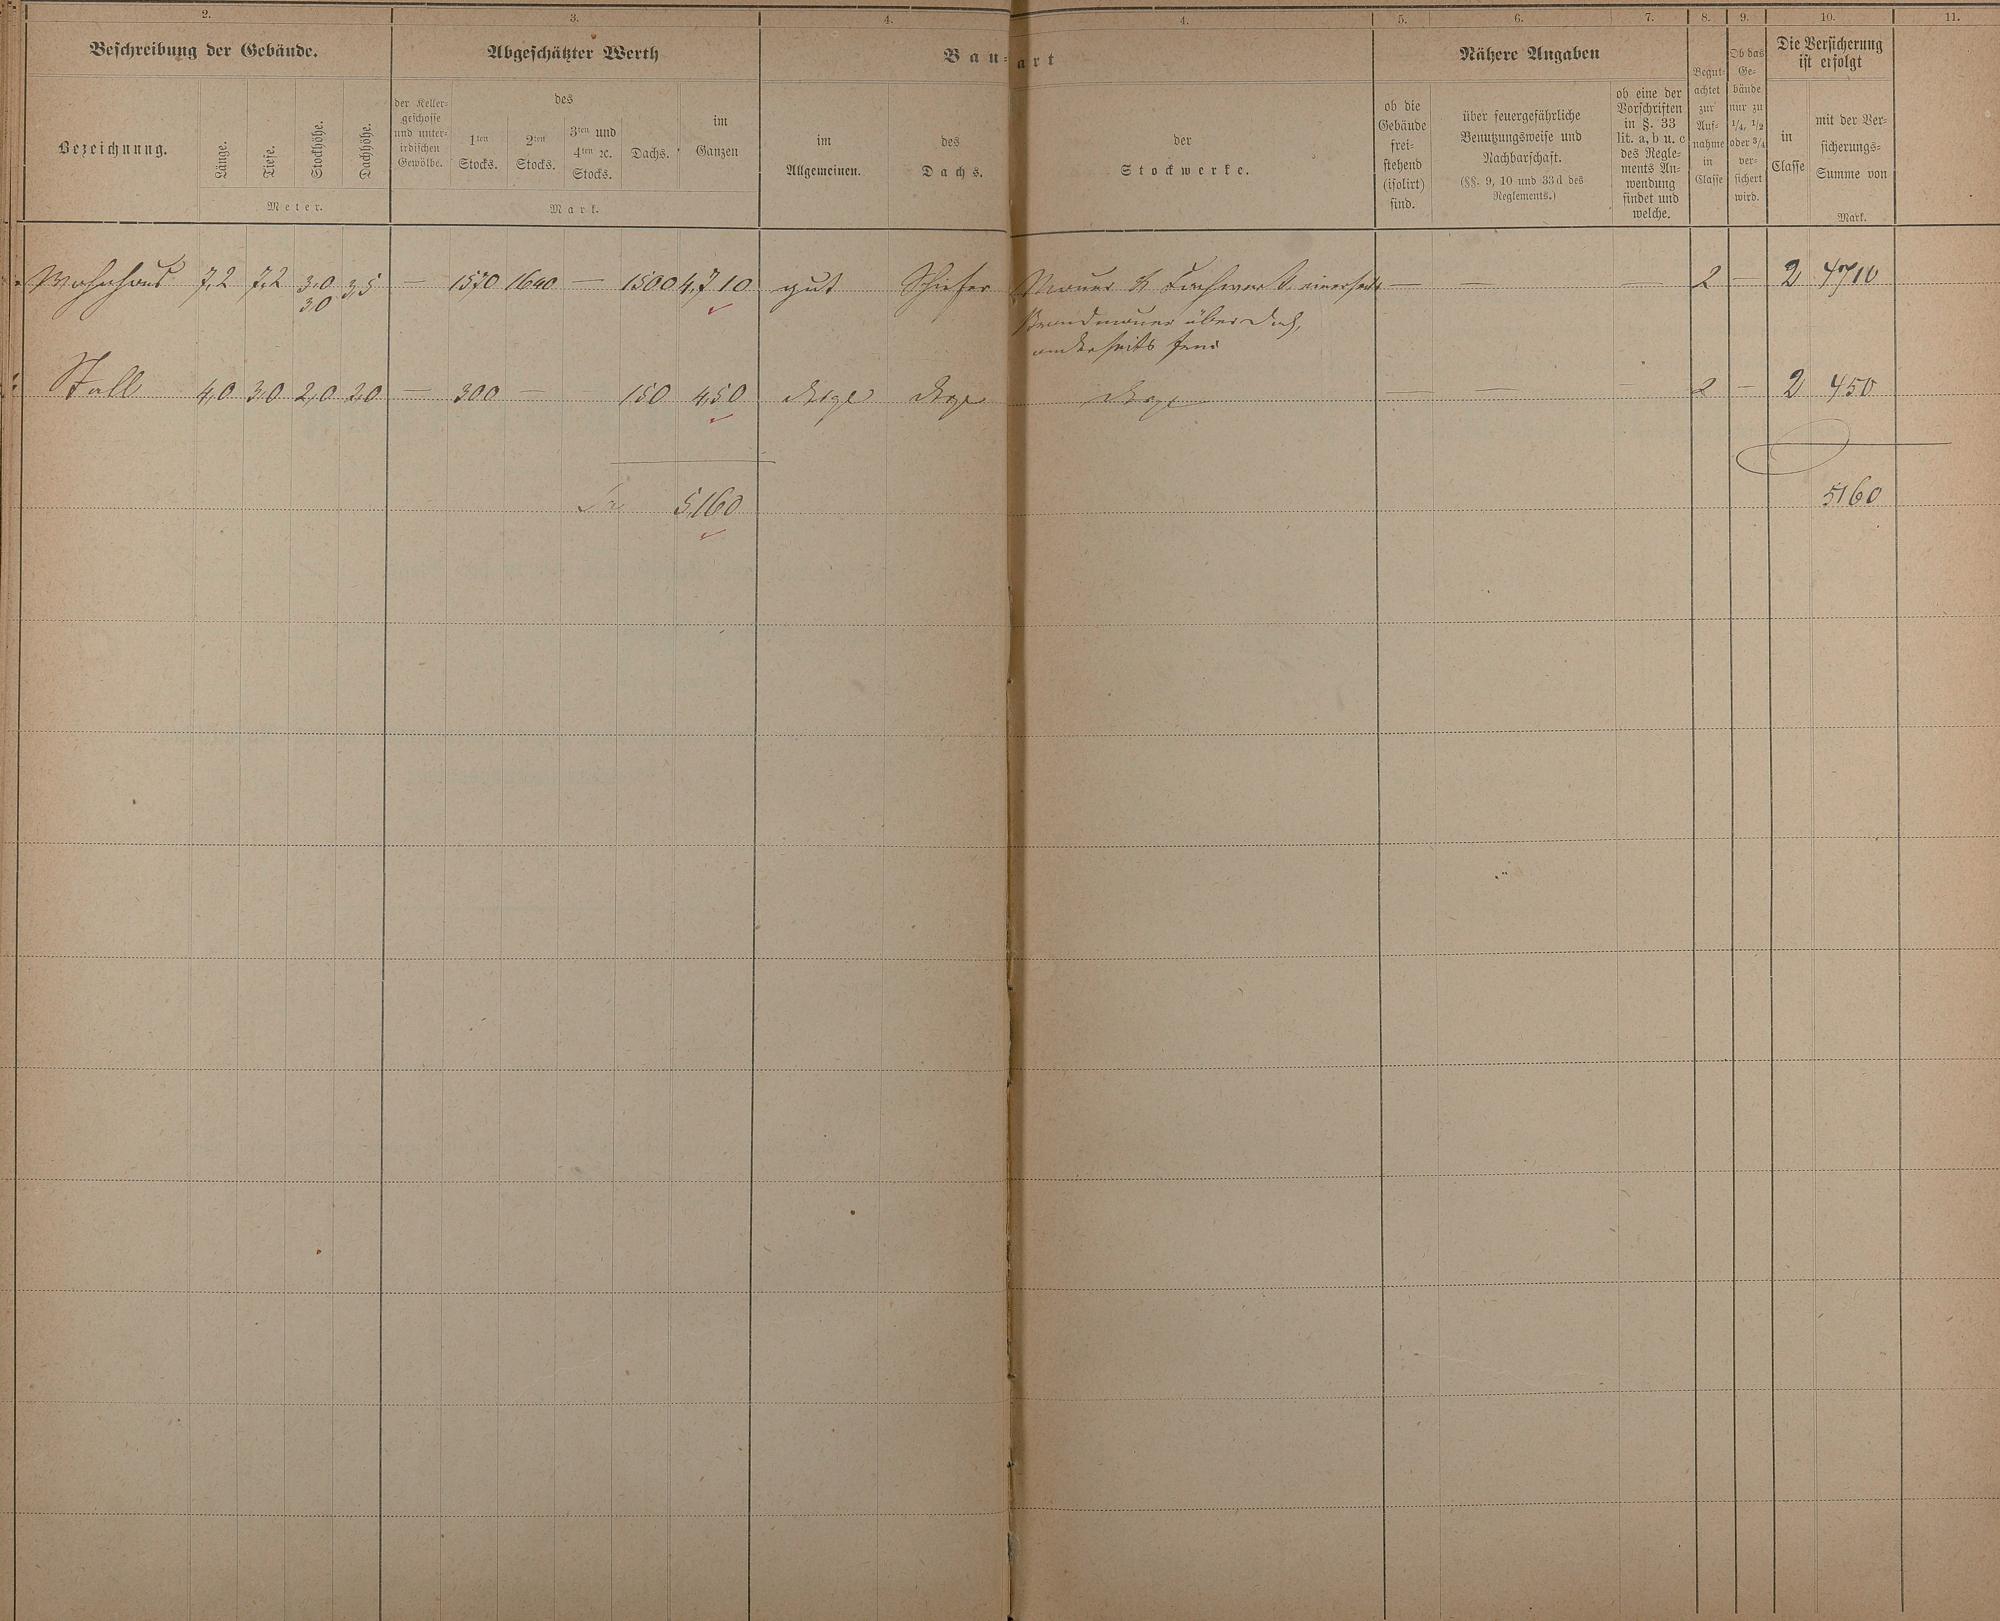 2. 3. 4. 4. 5. 6. 7. 8. 9. 10. 11.
Beschreibung der Gebäude.
Bezeichnung.
Länge.
Tiefe.
Stockhöhe.
Dachhöhe.
Meter.
Abgeschätzter Werth
der Keller-
geschosse
und unter-
irdischen
Gewölbe.
des
1ten
Stocks.
2ten
Stocks.
3ten und
4ten ꝛc.
Stocks.
Dachs.
im
Ganzen
Mark.
Bau-art
im
Allgemeinen.
des
Dachs.
der
Stockwerke.
Nähere Angaben
ob die
Gebäude
frei-
stehend
(isolirt)
sind.
über feuergefährliche
Benutzungsweise und
Nachbarschaft.
(§§. 9, 10 und 33d des
Reglements.)
ob eine der
Vorschriften
in §. 33
lit. a, b u. c
des Regle-
ments An-
wendung
findet und
welche.
Begut-
achtet
zur
Auf-
nahme
in
Classe
Ob das
Ge-
bäude
nur zu
1/4, 1/2
oder 3/4
ver-
sichert
wird.
Die Versicherung
ist erfolgt
in
Classe
mit der Ver-
sicherungs-
Summe von
Mark.
Wohnhaus 7,2 7,2 3,0 3,5 — 1570 1640 — 1500 4,710 gut Schiefer Mauer & Fachwerk einerseits — — — 2 — 2 4710
3,0
Brandmauer über Dach,
anderseits frei
Stall 4,0 3,0 2,0 2,0 — 300 — — 150 450 desgl desgl desgl — — — 2 — 2 450
Sa 5,160
5160